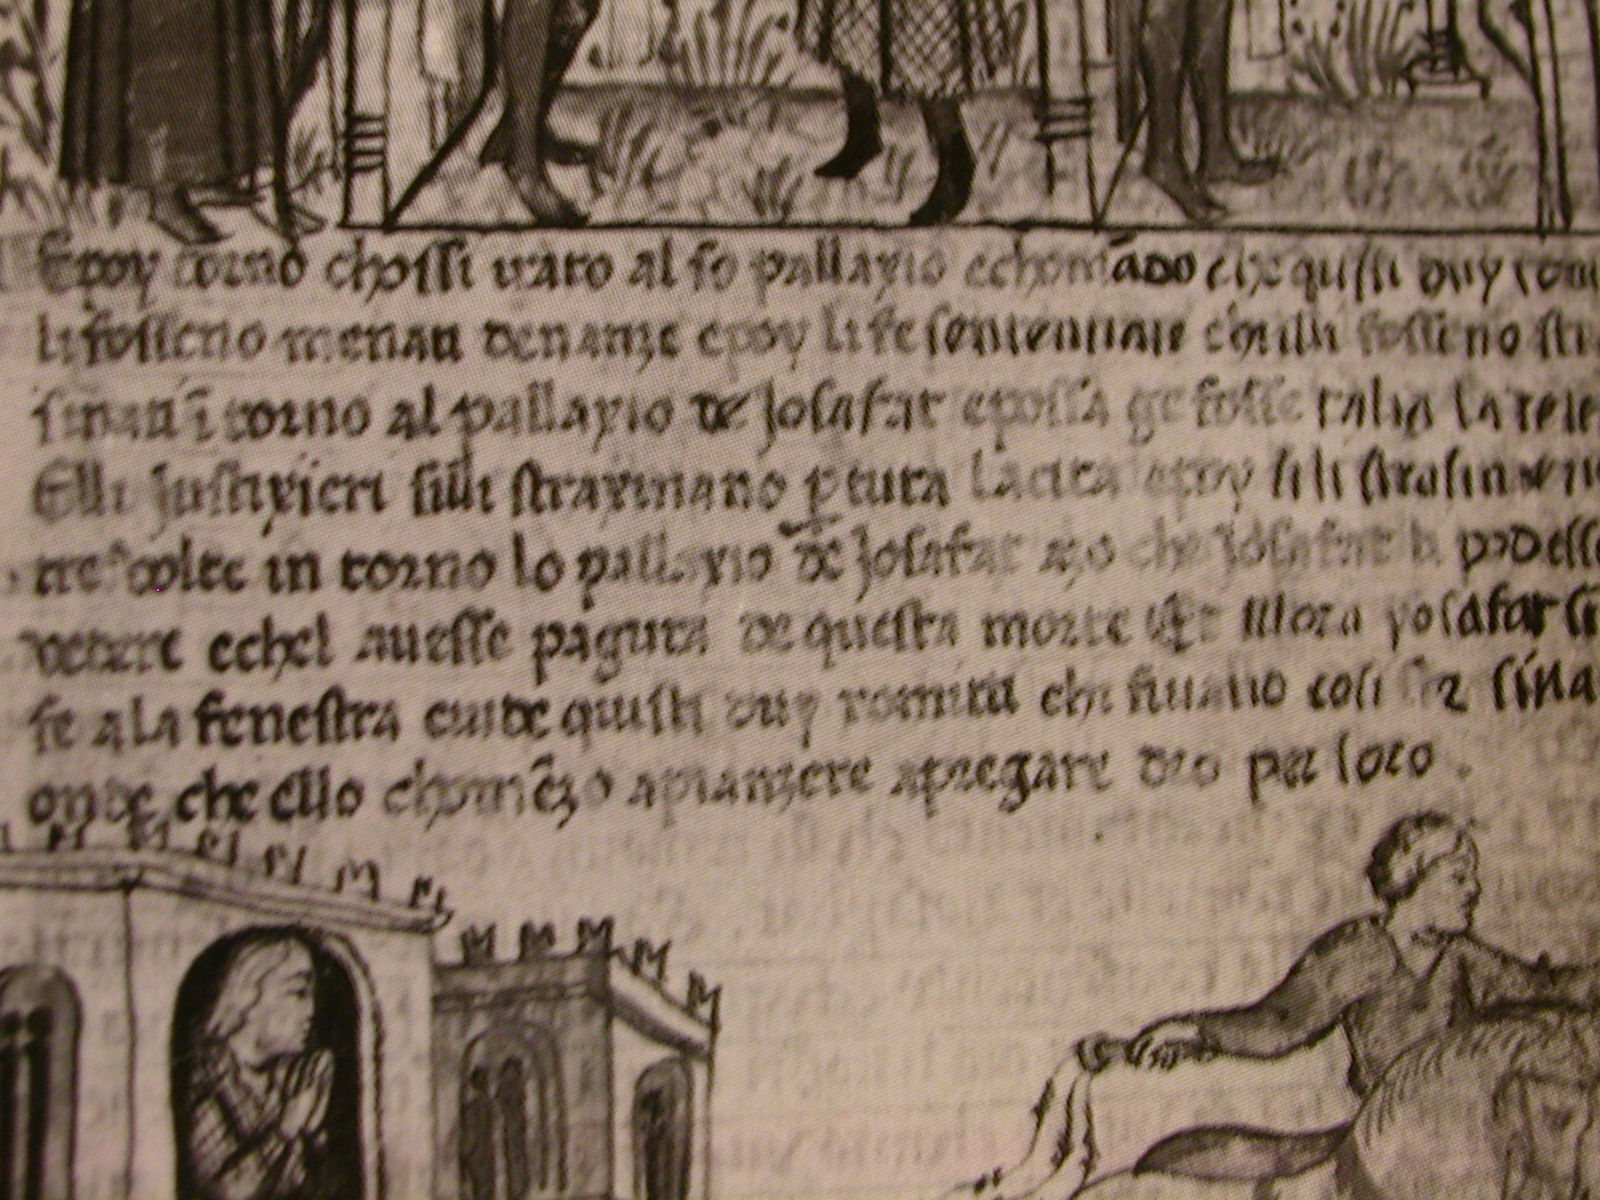 Epoy torno chossi irato al so pallayio echomādo che quisti duy romi
li fosseno menati denanze epoy li fe sententiare chilli fosseno stra
sinati ī torno al pallayio de Josafat epossa ge fosse talia la teste
Elli justixieri silli straxinano ꝑ tuta la cita epoy sili strasina
tre volte in torno lo pallayio de Josafat azo che Josafat li podesse
vedere echel auesse pagura de questa morte Illora yosafat si
fe ala fenestra euide quisti duy romiti che
onde che ello chomēzo apianzere apregare dio per loro .